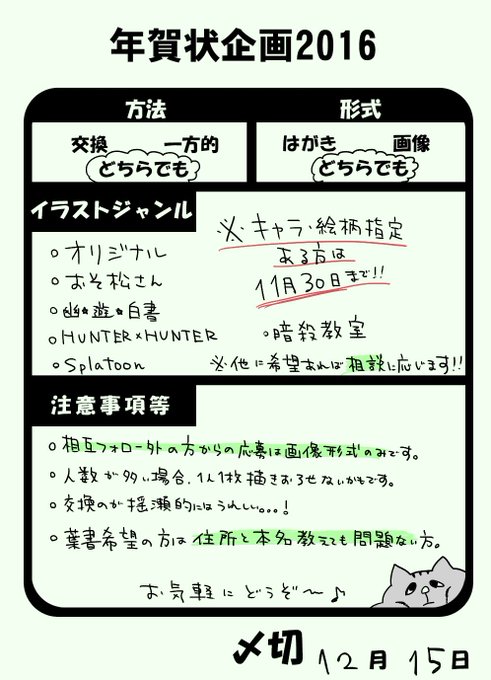 年賀状企画2016
方法
形式
交換 一方的
どちらでも
はがき 画像
どちらでも
イラストジャンル
※キャラ・絵柄指定
ある方は
11月30日まで!!
○オリジナル
○おそ松さん
○幽☆遊☆白書
○HUNTER×HUNTER
○暗殺教室
○Splatoon
※他に希望あれば相談に応じます!!
注意事項等
○相互フォロー外の方からの応募は画像形式のみです。
○人数が多い場合、1人1枚描きおろせないかもです。
○交換のが揺瀬的にはうれしい。。。!
○葉書希望の方は住所と本名教えても問題ない方。
お気軽にどうぞ～♪
〆切 12月 15日